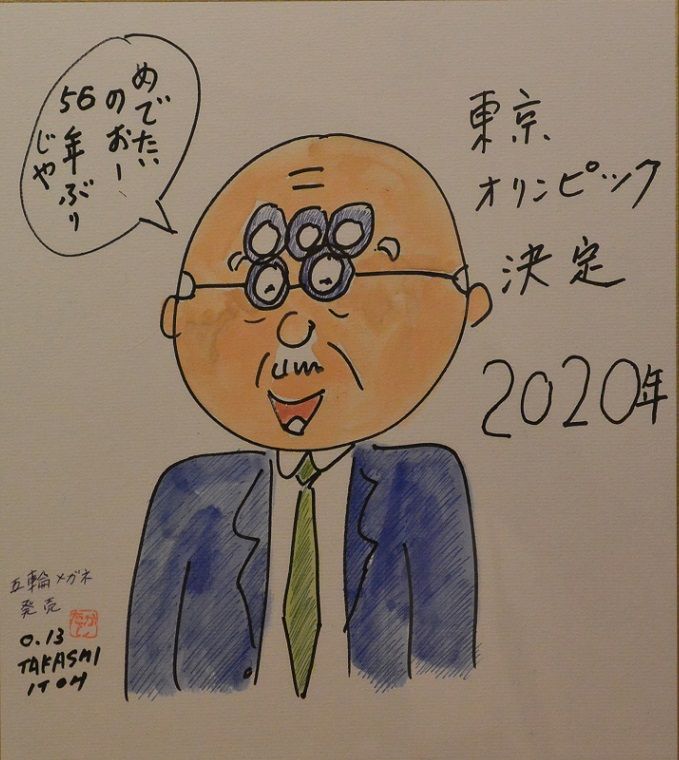 めでたい
のおー
56年ぶり
じゃ
東京
オリンピック
決定
2020年
五輪メガネ
発売
0.13
TAKASHI
ITOH